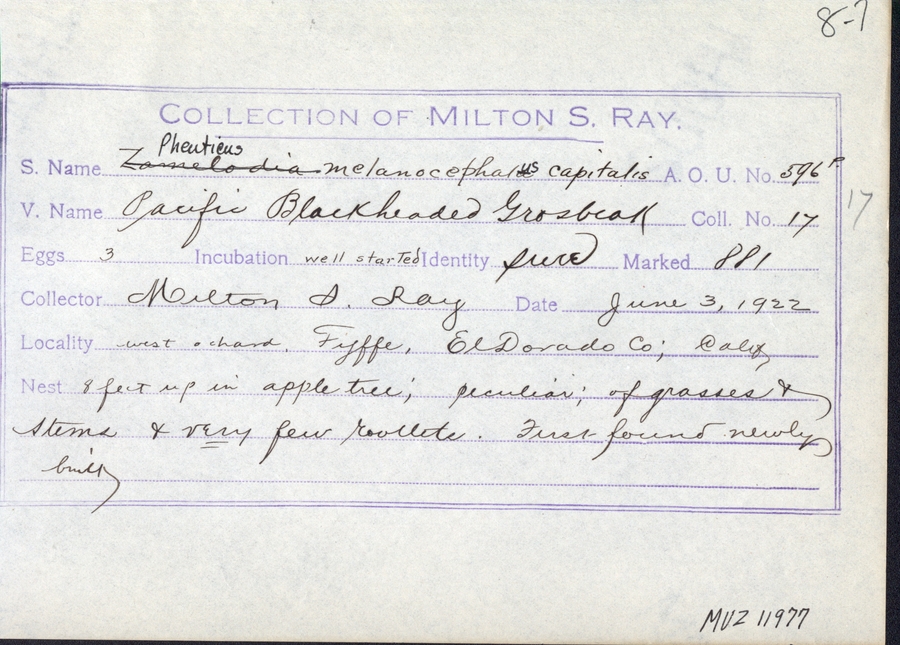 8-7
COLLECTION OF MILTON S. RAY.
Pheuticus
S. Name Zamelodia melanocephalus capitalis A. O. U. No. 596a
V. Name Pacific Blackheaded Grosbeak Coll. No. 17
17
Eggs 3 Incubation well started Identity sure Marked 881
Collector Milton S. Ray Date June 3, 1922
Locality west orchard, Fyffe, El Dorado Co; Calif
Nest 8 feet up in apple tree; peculiar; of grasses &
stems & very few rootlets. First found newly
built
MVZ 11977